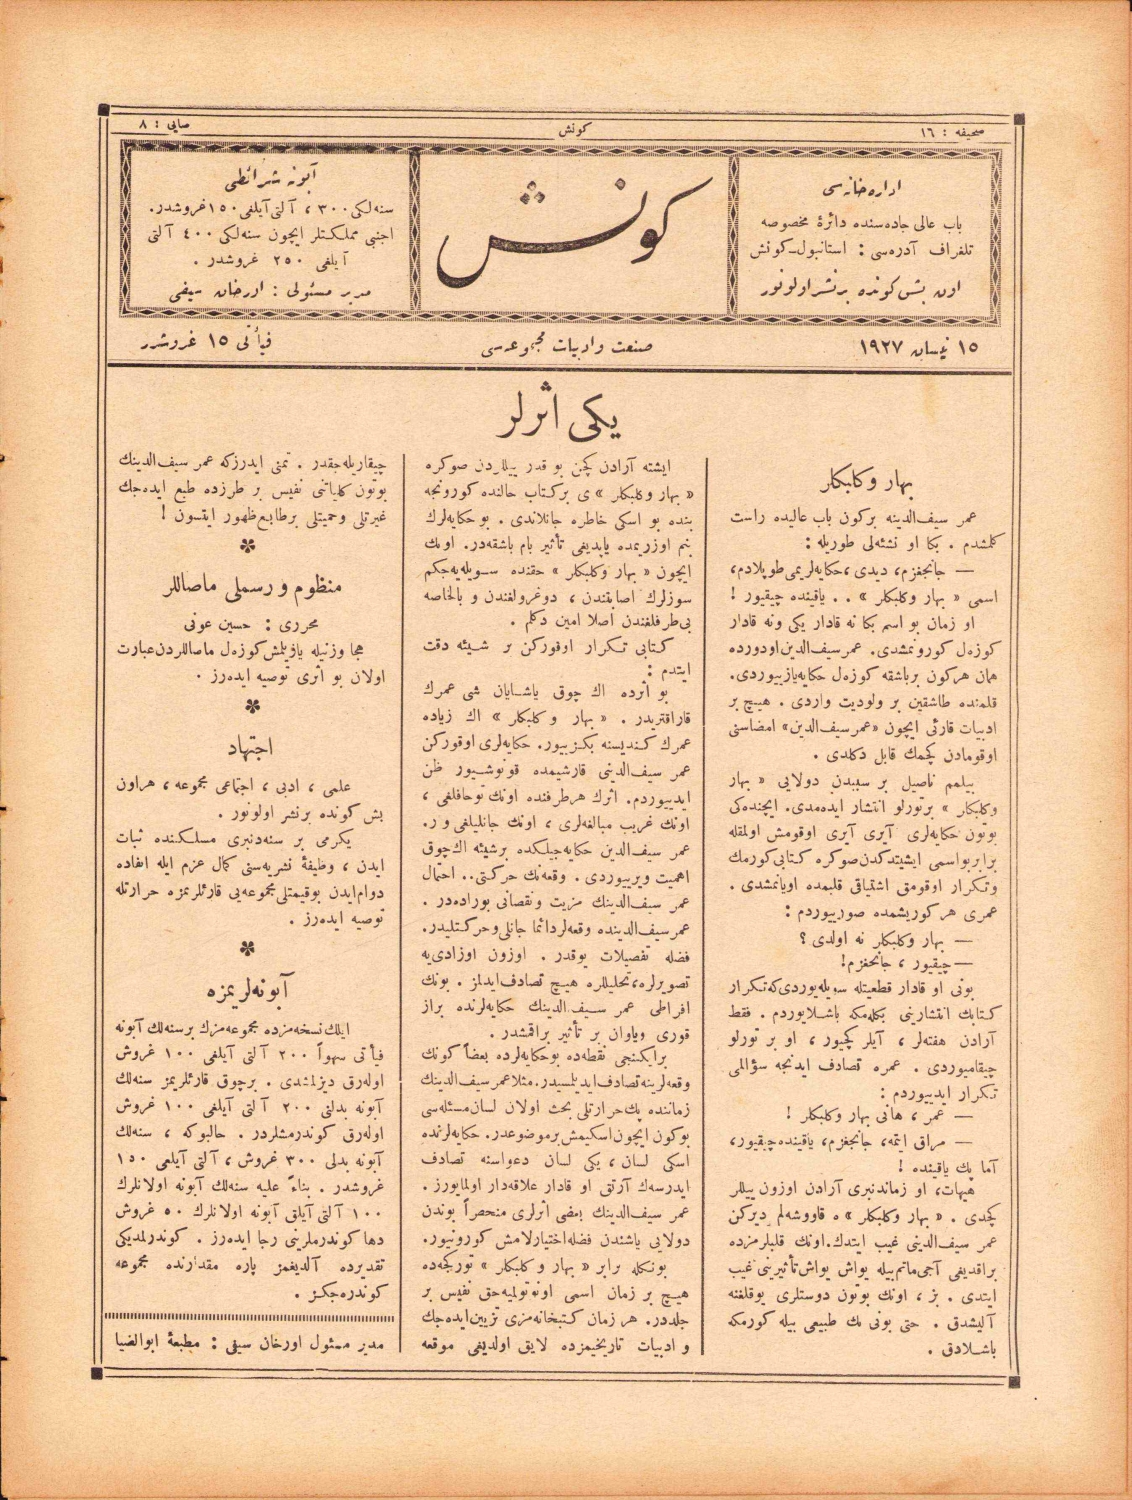 صحیفه : ١٦
كونش
صایی : ٨
اداره خانه سی
باب عالی جاده سنده دائرهٔ مخصوصه
تلغراف آدره سی : استانبول ـ كونش
اون بش كونده بر نشر اولونور
كونش
آبونه شرائطی
سنه لكی ٣٠٠ ، آلتی آیلغی ١٥٠ غروشدر.
اجنبی مملكتلر ایچون سنه لكی ٤٠٠ آلتی
آیلغی ٢٥٠ غروشدر .
مدیر مسئولی : اورخان سیفی
١٥ نیسان ١٩٢٧
صنعت و ادبیات مجموعه سی
فیأتی ١٥ غروشدر
یكی اثرلر
بهار و كلبكلر
عمر سیف الدینه بركون باب عالیده راست
كلمشدم . بكا او نشئه لی طوریله :
— جانجغزم، دیدی، حكایه لریمی طوپلادم،
اسمی « بهار و كلبكلر » . . یاقینده چیقیور !
او زمان بو اسم بكا نه قادار یكی ونه قادار
كوزه ل كورونمشدی. عمر سیف الدین اودورده
همان هركون بر باشقه كوزه ل حكایه یازییوردی.
قلمنده طاشقین بر ولودیت واردی . هیچ بر
ادبیات قارئی ایچون «عمر سیف الدین» امضاسنی
اوقومادن كچمك قابل دكلدی .
بیلمم ناصیل بر سببدن دولایی « بهار
وكلبكلر » برتورلو انتشار ایده مدی. ایچنده كی
بوتون حكایه لری آیری آیری اوقومش اولمقله
برابر بو اسمی ایشیتدكدن صوكره كتابی كورمك
وتكرار اوقومق اشتیاقی قلبمده اویانمشدی .
عمری هر كوریشمده صورییوردم :
— بهار وكلبكلر نه اولدی ؟
— چیقیور ، جانجغزم!
بونی او قادار قطعیتله سویله یوردی كه تكرار
كتابك انتشارینی بكله مكه باشلایوردم . فقط
آرادن هفته لر ، آیلر كچیور ، او بر تورلو
چیقامیوردی . عمره تصادف ایدنجه سؤالمی
تكرار ایدییوردم :
— عمر ، هانی بهار وكلبكلر !
— مراق ایتمه، جانجغزم، یاقینده چیقیور،
آما پك یاقینده !
هیهات، او زماندنبری آرادن اوزون ییللر
كچدی . « بهار وكلبكلر » ه قاووشه لم دیركن
عمر سیف الدینی غیب ایتدك. اونك قلبلرمزده
براقدیغی آجی ماتم بیله یواش یواش تأثیرینی غیب
ایتدی . بز ، اونك بوتون دوستلری یوقلغنه
آلیشدق . حتی بونی پك طبیعی بیله كورمكه
باشلادق .
ایشته آرادن كچن بو قدر ییللردن صوكره
« بهار وكلبكلر » ی بر كتاب حالنده كورونجه
بنده بو اسكی خاطره جانلاندی . بو حكایه لرك
بنم اوزریمده یاپدیغی تأثیر بام باشقه در. اونك
ایچون « بهار وكلبكلر » حقنده سویله یه جكم
سوزلرك اصابتندن ، دوغرولغندن و بالخاصه
بی طرفلغندن اصلا امین دكلم .
كتابی تكرار اوقوركن بر شیئه دقت
ایتدم :
بو اثرده اك چوق یاشایان شی عمرك
قاراقتریدر . « بهار و كلبكلر » اك زیاده
عمرك كندیسنه بكزییور. حكایه لری اوقوركن
عمر سیف الدینی قارشیمده قونوشیور ظن
ایدییوردم. اثرك هر طرفنده اونك توحافلغی ،
اونك غریب مبالغه لری ، اونك جانلیلغی وار.
عمر سیف الدین حكایه جیلكده برشیئه اك چوق
اهمیت ویرییوردی . وقعه نك حركتی.. احتمال
عمر سیف الدینك مزیت ونقصانی بوراده در .
عمر سیف الدینده وقعه لر دائما جانلی وحركتلیدر.
فضله تفصیلات یوقدر . اوزون اوزادی یه
تصویرلره، تحلیللره هیچ تصادف ایدلمز . بونك
افراطی عمر سیف الدینك حكایه لرنده براز
قوری ویاوان بر تأثیر براقمشدر .
بر ایكنجی نقطه ده بو حكایه لرده بعضاً كونك
وقعه لرینه تصادف ایدیلسیدر. مثلا عمر سیف الدینك
زماننده پك حرارتلی بحث اولان لسان مسئله سی
بوكون ایچون اسكیمش بر موضوعدر. حكایه لرنده
اسكی لسان ، یكی لسان دعواسنه تصادف
ایدرسه ك آرتق او قادار علاقه دار اولمایورز .
عمر سیف الدینك بعضی اثرلری منحصراً بوندن
دولایی یاشندن فضله اختیارلامش كورونیور.
بونكله برابر « بهار و كلبكلر » توركجه ده
هیچ بر زمان اسمی اونوتولمیه جق نفیس بر
جلددر. هر زمان كتبخانه مزی تزیین ایده جك
و ادبیات تاریخیمزده لایق اولدیغی موقعه
چیقاریله جقدر . تمنی ایدرزكه عمر سیف الدینك
بوتون كلیاتنی نفیس بر طرزده طبع ایده جك
غیرتلی وحمیتلی بر طابع ظهور ایتسون !
منظوم و رسملی ماصاللر
محرری : حسین عونی
هجا وزنیله یازیلمش كوزه ل ماصاللردن عبارت
اولان بو اثری توصیه ایده رز .
اجتهاد
علمی ، ادبی ، اجتماعی مجموعه ، هر اون
بش كونده بر نشر اولونور .
یكرمی بر سنه دنبری مسلكنده ثبات
ایدن ، وظیفهٔ نشریه سنی كمال عزم ایله ایفاده
دوام ایدن بو قیمتلی مجموعه یی قارئلرمزه حرارتله
توصیه ایده رز .
آبونه لریمزه
ایلك نسخه مزده مجموعه مزك بر سنه لك آبونه
فیأتی سهواً ٢٠٠ آلتی آیلغی ١٠٠ غروش
اوله رق دیزلمشدی . بر چوق قارئلریمز سنه لك
آبونه بدلنی ٢٠٠ آلتی آیلغی ١٠٠ غروش
اوله رق كوندرمشلردر . حالبوكه ، سنه لك
آبونه بدلی ٣٠٠ غروش ، آلتی آیلغی ١٥٠
غروشدر . بناءً علیه سنه لك آبونه اولانلرك
١٠٠ آلتی آیلق آبونه اولانلرك ٥٠ غروش
دها كوندرملرینی رجا ایده رز . كوندرلمدیكی
تقدیرده آلدیغمز پاره مقدارنده مجموعه
كوندره جكز .
مدیر مسئول اورخان سیفی : مطبعهٔ ابوالضیا